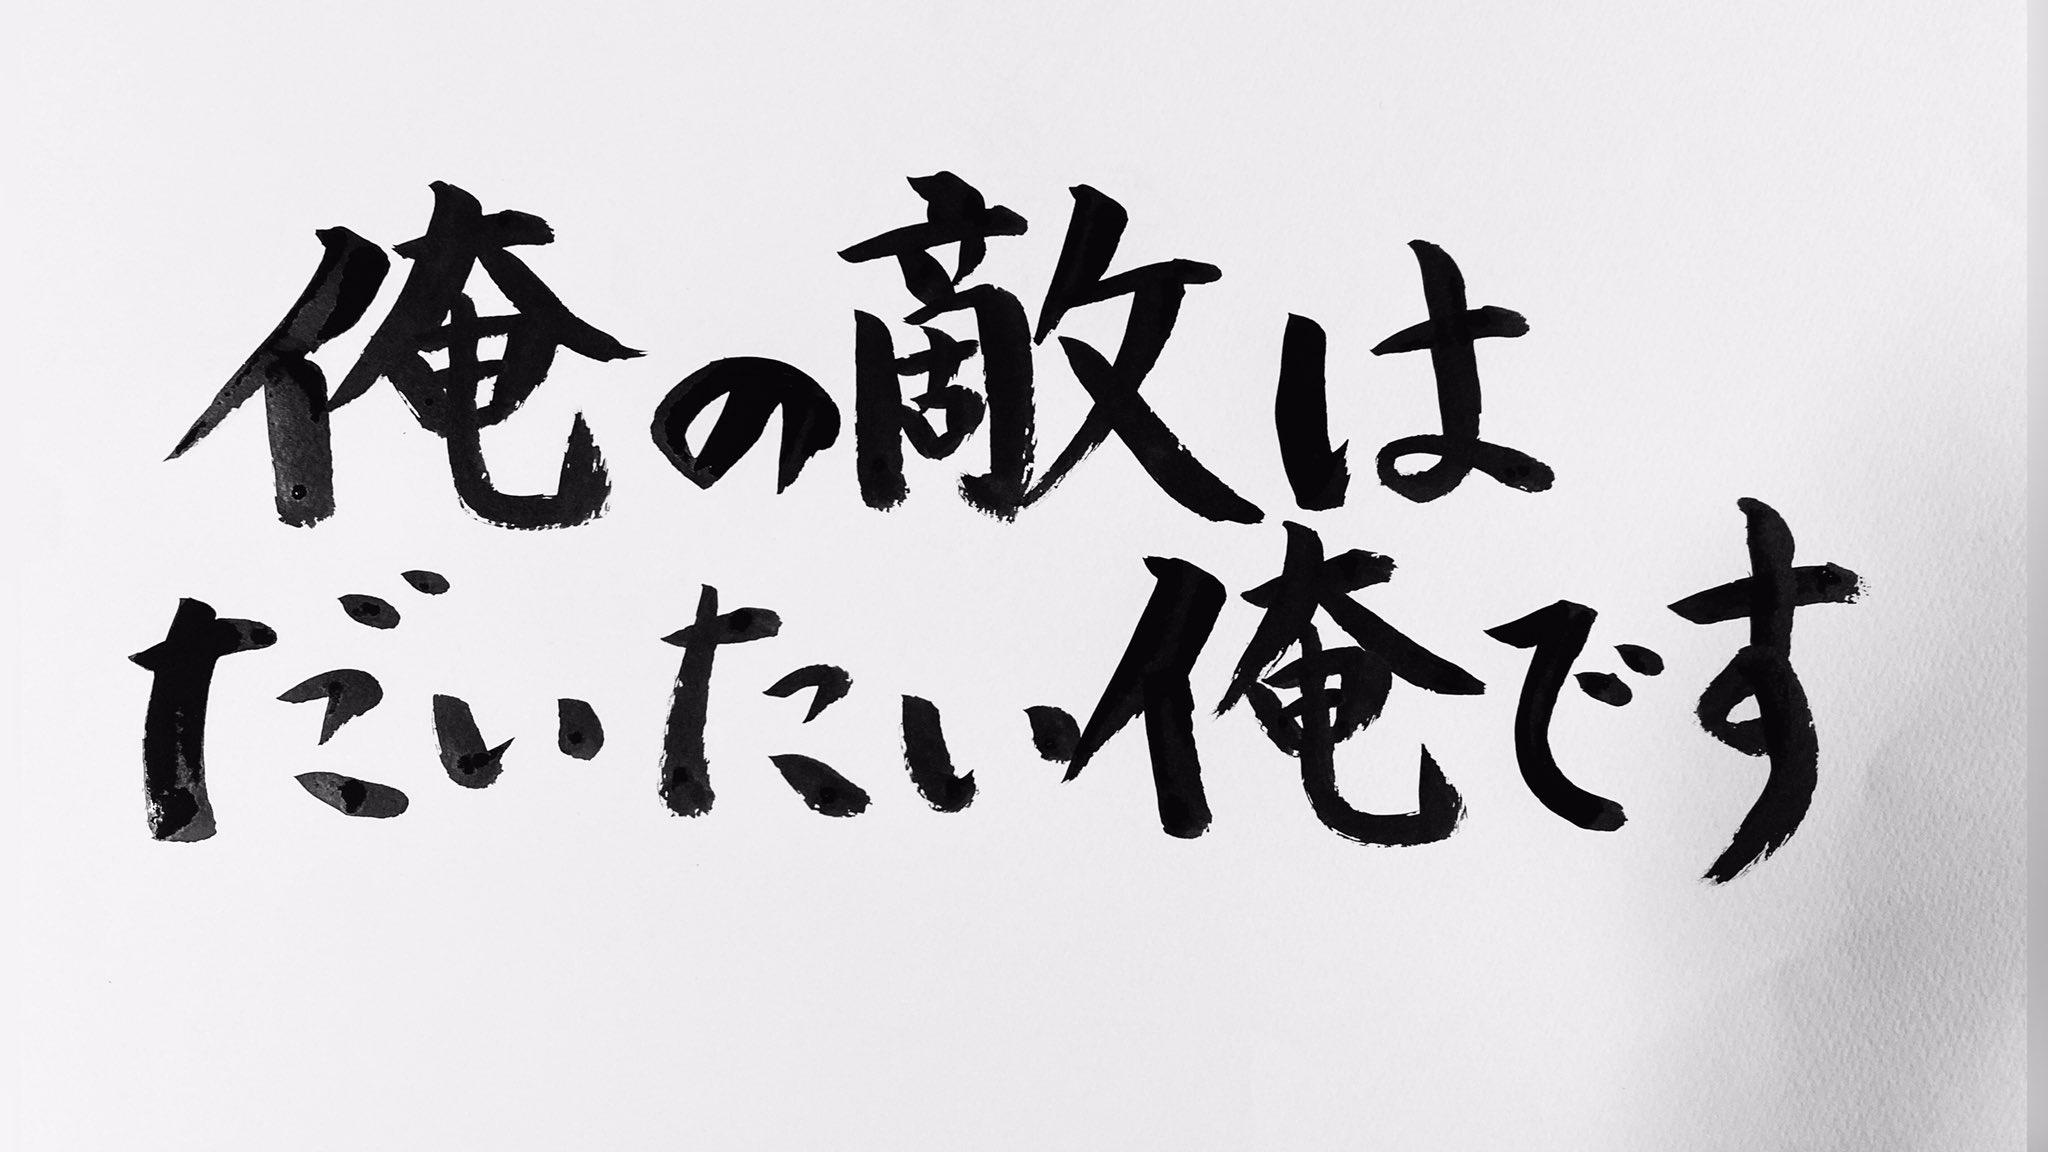 俺の敵は
だいたい俺です